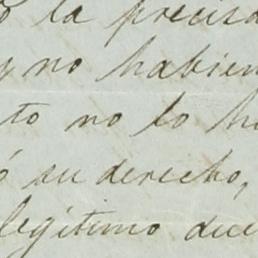 la precisa
y no habien
to no lo h
ó su derecho,
legítimo due